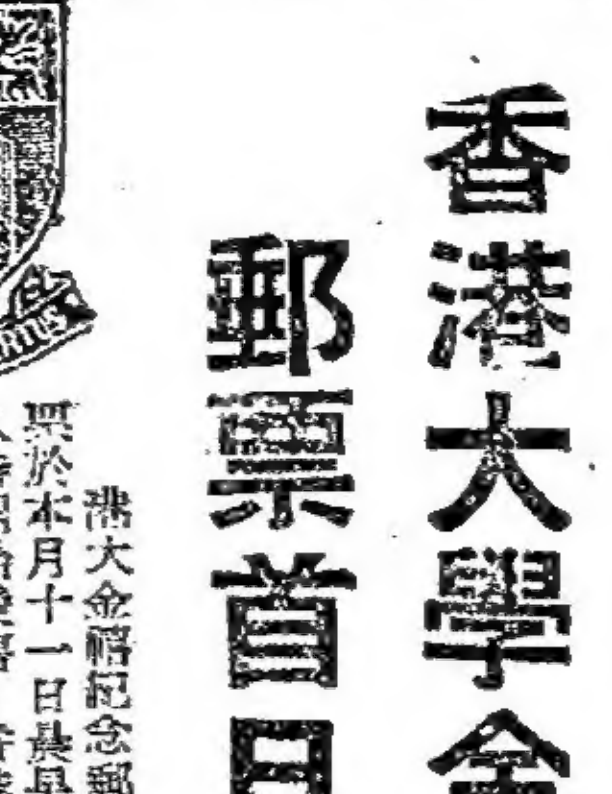 香港大學金
郵票首日
港大金禧紀念郵
票於本月十一日晨早